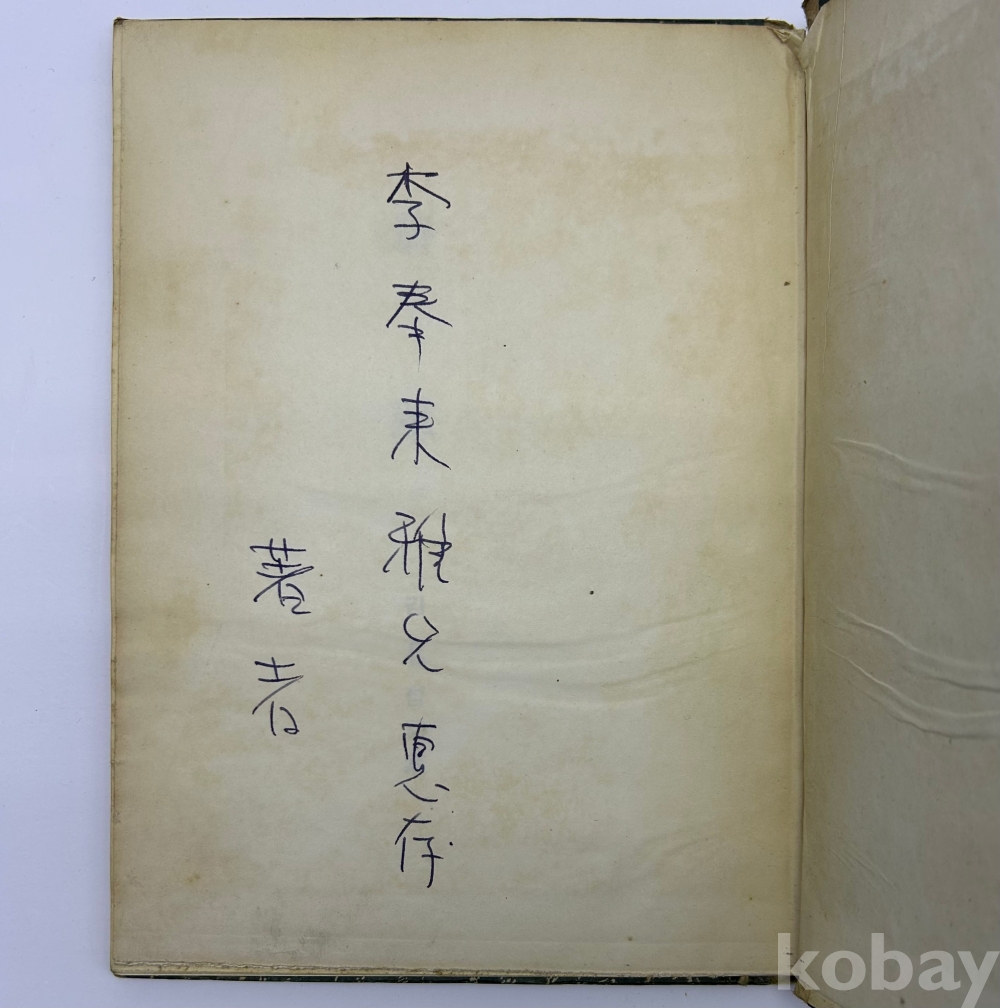 李奉来雅兄惠存
著者
kobay